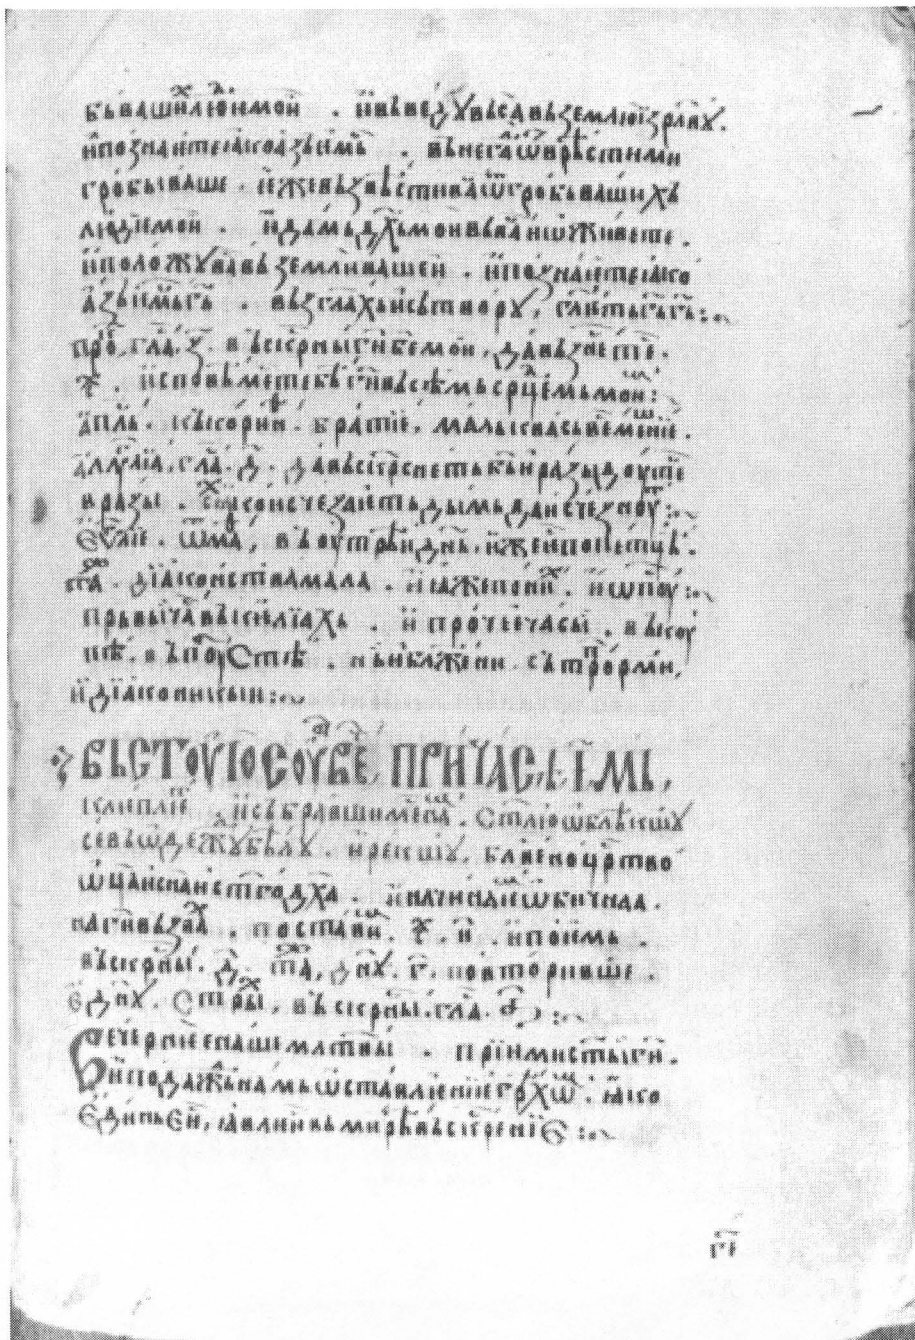 вашихъ людїи мои . и въведꙋ вь сѧ въ землю їзр҃лвꙋ .
и познаите ꙗко азь есмь г҃ь . вънегда ѿврѣсти ми
гробы ваше . еже възвести васъ ѿ гробъ вашихъ
людїе мои . и дамь д҃хь мои въ вась и живете .
и положꙋ вась въ земли вашеи . и познаите ꙗко
азь есмь г҃ь . възг҃лахь и сътворꙋ , г҃лѥть г҃ь г҃ь :~
про , гла , з҃ . въскр҃сни г҃и б҃е мои , да възнесет се .
ст҃ . исповѣмь се тебѣ г҃и въсѣмь ср҃цемь мои :
ап҃ль . къ кори҃н . братїе , маль квась въсе мѣшенїе .
алли҃лꙋїа , гла . д҃ . да въскр҃снеть б҃ь и разыдоут се
врази . ст҃ ꙗко исчезаеть дымь да исчезноут :~
еѵ҃лїе . ѿ ма҃т , въ оутрѣи д҃нь , иже и по петць .
та . дїакон҃ства мала . и ꙗже по ни҃х . и ѿпоу :~
прьвыи ча въ келїахь . и прочеи часы . въ коу
пѣ . въ поустѣ . на б҃лженни . съ тропарми ,
и дїаконикыи :~
въ ст҃оую соуботоу ве҃ , при час҃ѣ , і҃ мь ,
клепле҃т , и събравшим се на҃м . ст҃лю ѡблѣкшꙋ
се въ ѡдеждꙋ бѣлꙋ . и рекшꙋ , бл҃вено цр҃тво
ѿца и с҃на и ст҃го д҃ха . и начинаем ѡбичнаа .
на г҃и възва҃х . постави҃м . ст҃ . и҃ . и поемь .
въскр҃сны . д҃ . та , дн҃ꙋ . г҃ . повторивше .
един҃ꙋ . ст҃ры , въскр҃сны . гла . а҃ :~
Вечерние наше м҃лтвы . прїими ст҃ы г҃и .
и подаждь намь ѡставлѥнїе грѣхѡм . ꙗко
единь еси , ꙗвлеи въ мирѣ въскр҃сенїе :~
г҃і